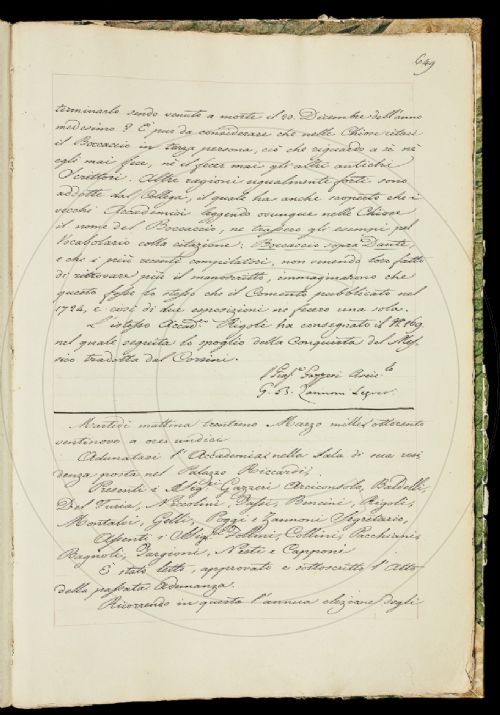 649
terminarlo sendo venuto a morte il 20. Dicembre dell'anno
medesimo? È pur da considerare che nelle Chiose citasi
il Boccaccio in terza persona, ciò che riguardo a sè nè
egli mai fece, nè il fecer mai gli altri antichi
Scrittori. Altre ragioni ugualmente forti sono
addotte dal Collega, il quale ha anche scoperto che i
vecchi Accademici leggendo ovunque nelle Chiose
il nome del Boccaccio, ne trassero gli esempi pel
Vocabolario colla citazione: Boccaccio sopra Dante,
e che i più recenti compilatori, non venendo loro fatto
di ritrovare più il manoscritto, immaginarono che
questo fosse lo stesso che il Comento pubblicato nel
1724, e così di due esposizioni ne fecero una sola.
L'istesso Accad.o Rigoli ha consegnato il N. 169.
nel quale seguita lo spoglio della Conquista del Mes-
sico tradotta dal Corsini.
Gazzeri
G. B. Zannoni Segret.
Martedì mattina trentuno Marzo mille ottocento
ventinove a ore undici
Adunatasi l'Accademia nella Sala di sua resi
denza posta nel Palazzo Riccardi;
Presenti i Sigri Gazzeri Arciconsolo, Baldelli,
Del Furia, Niccolini, Bencini, Rigoli,
Montalvi, Gelli, Poggi e Zannoni Segretario,
Assenti i Sigri Follini, Collini, Pacchiani,
Bagnoli, Targioni, Nesti e Capponi
È stato letto, approvato e sottoscritto l'Atto
della passata Adunanza.
Ricorrendo in questa l'annua elezione degli